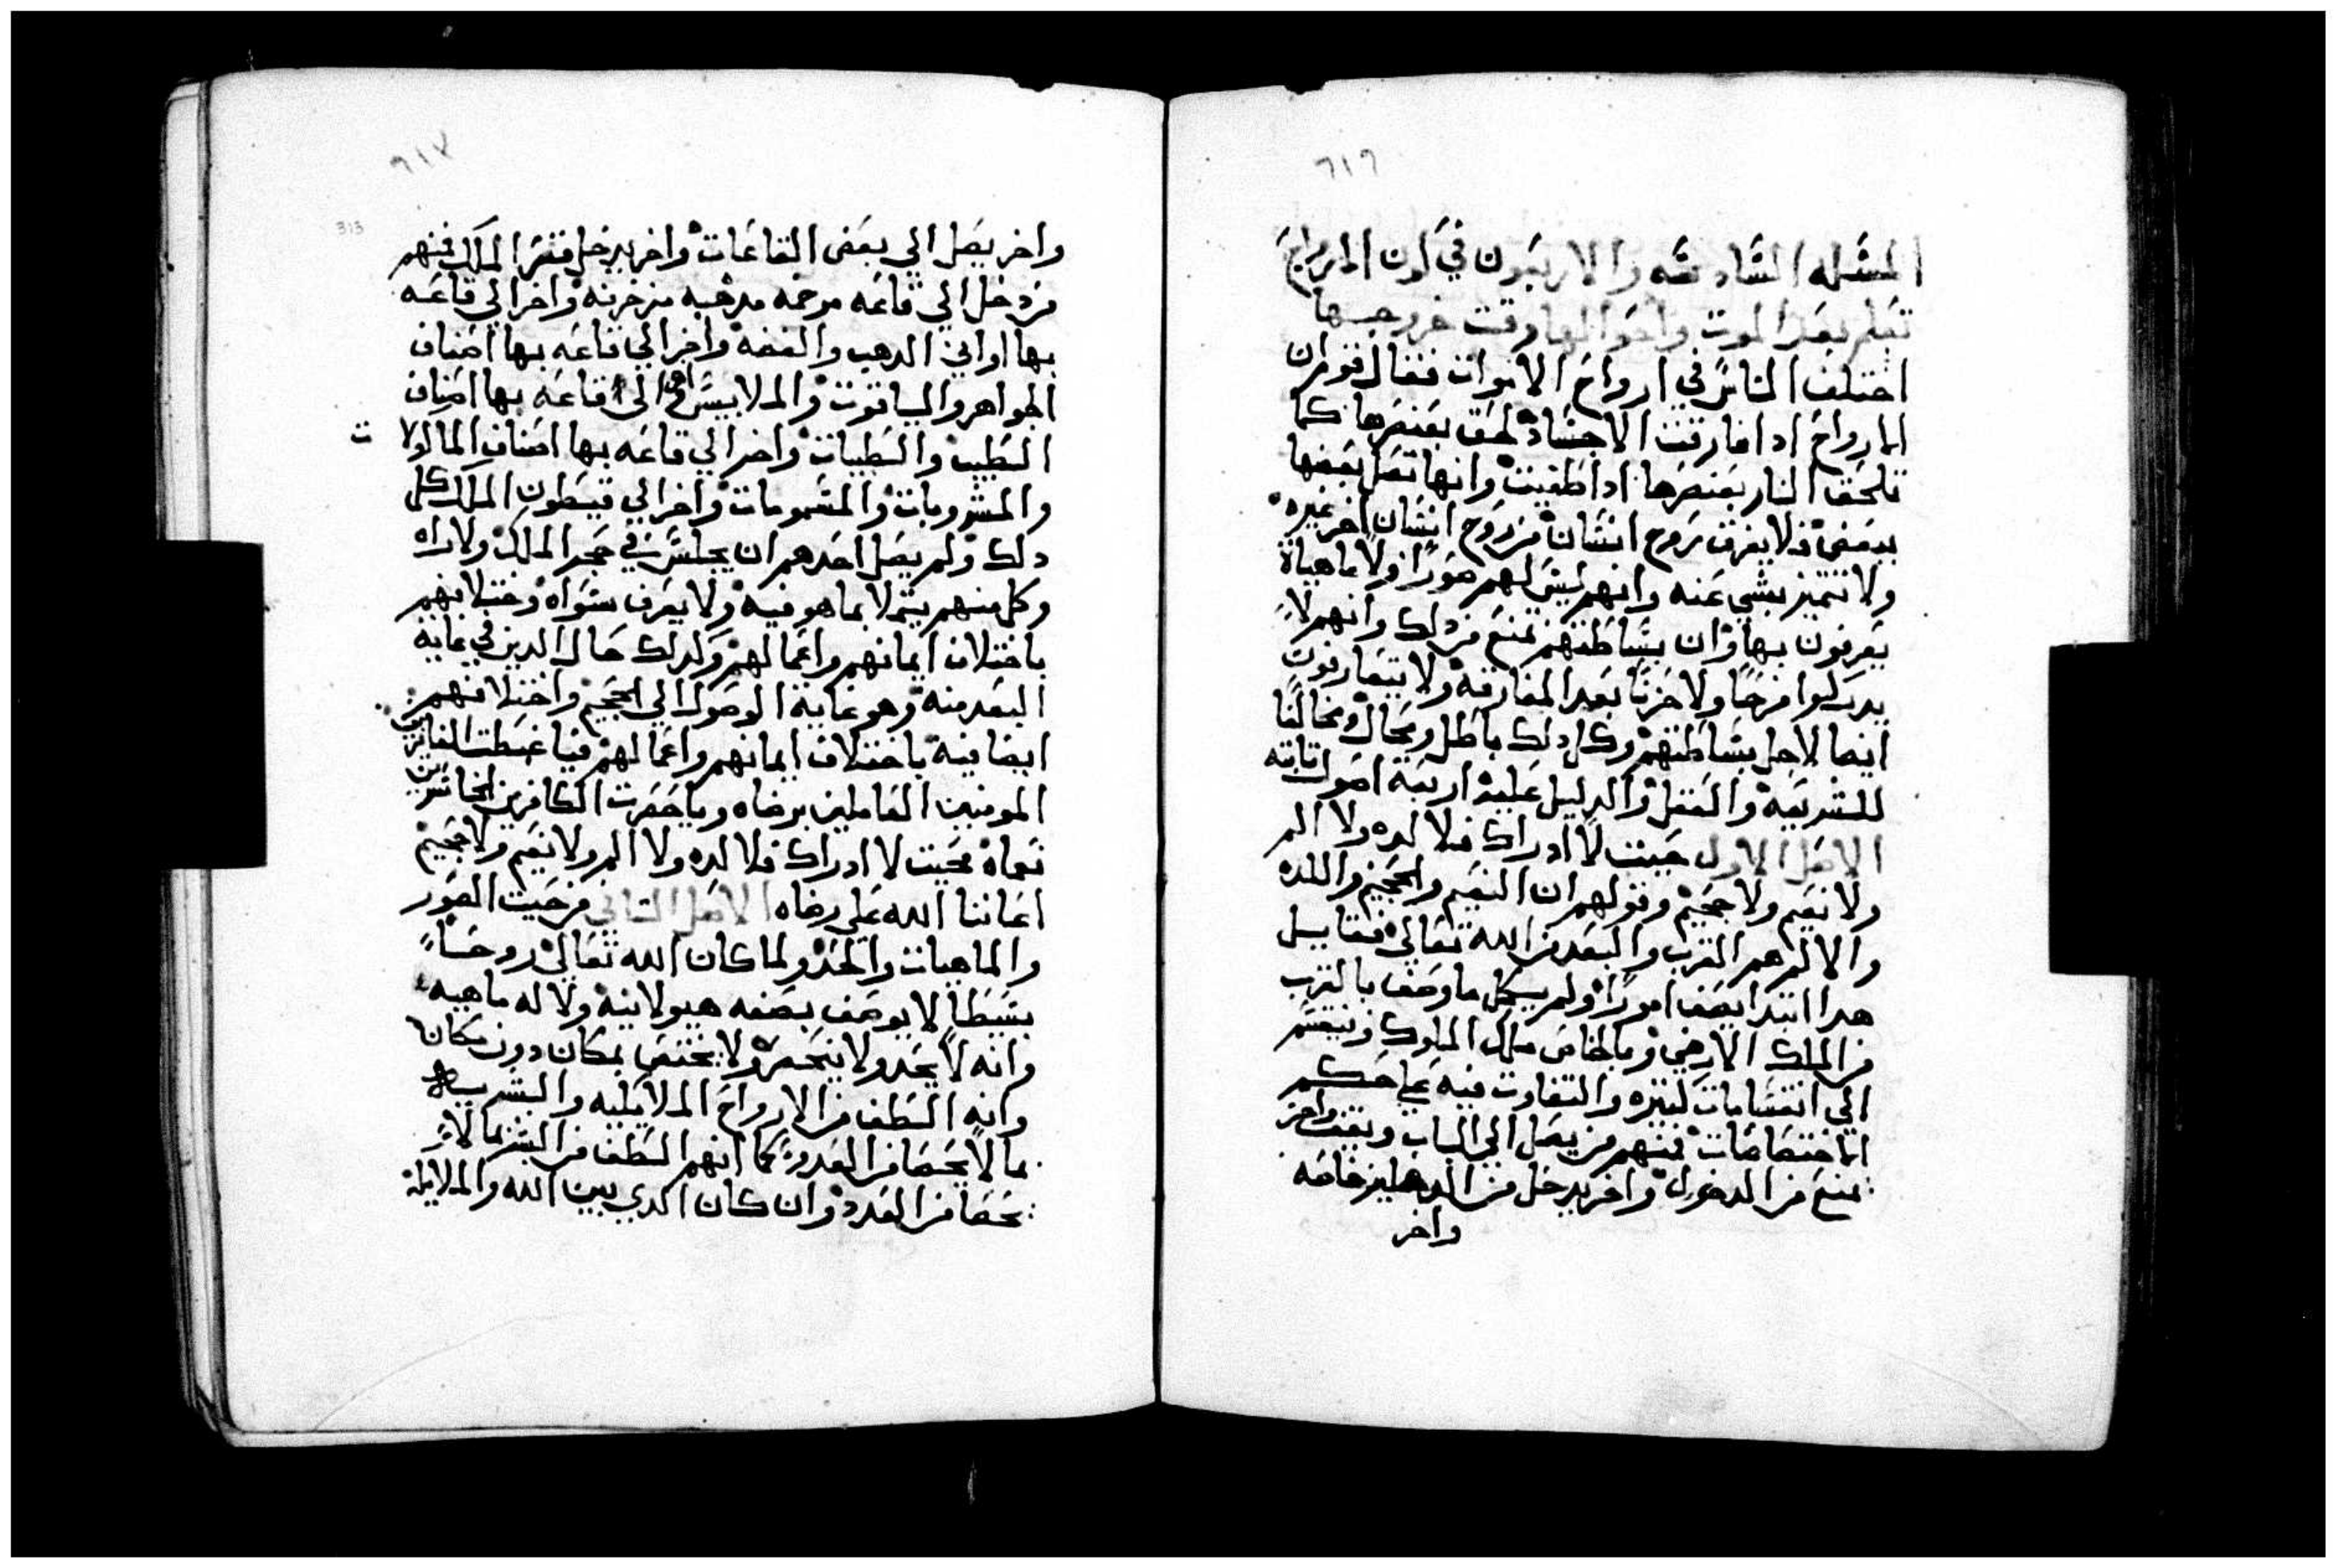 ٦١٦
المسله السادسه والاربعون في كون الارواح
تعلم بعد الموت واحوالها وقت خروجها
اختلف الناس في ارواح الاموات فقال قوم ان
الارواح ادا فارقت الاجساد لحقت بعنصرها كما
تلحق النار بعنصرها ادا طفيت وانها تصل بعضها
ببعض فلا يفرق بروح انسان من روح انسان اخر غيره
ولا تتميز بشي عنه وانهم ليس لهم صورا ولا ماهياة
يعرفون بها وان بساطتهم تمنع من دلك وانهم لا
يدركوا فرحا ولا حزنا بعد المفارقة ولا يتعارفون
ايضا لاجل بساطتهم وكل دلك باطل ومحال ومخالفا
للشريعة والعقل والدليل عليه اربعة اصول تابته
الاصل الاول حيت لا ادراك فلا لده ولا الم
ولا نعيم ولا جحيم وقولهم ان النعيم والجحيم واللده
والالم هم القرب والبعد من الله تعالى فقايل
هدا ابتدا يصف امورا ولم يكمل ما وصف بالقرب
من الملك الارضي وبالخاص ملك الملوك وينقسم
الي انقسامات كتيره والتفاوت فيه على حكم
الاختصاصات فمنهم من يصل الي الباب ويقف واخر
يمنع من الدخول واخر يدخل من الدهليز خاصه
واخر
٦١٧
313
واخر يصل الي بعض القاعات واخر يدخل قصر الملك فمنهم
من دخل الي قاعه مرخمه مدهبه مزخرفه واخر الي قاعه
بها اواني الدهب والفضه واخر الي قاعه بها اصناف
الجواهر والياقوت والملابيس واخر الي قاعه بها اصناف
الطيب والطيبات واخر الي قاعه بها اصناف الماكولات
والمشروبات والمشمومات واخر الي قيطون الملك كل
دلك ولم يصل احدهم ان يجلس في حجر الملك ولا راه
وكل منهم يتملا بما هو فيه ولا يعرف سواه وختلافهم
باختلاف ايمانهم واعمالهم وكدلك حال الدين في غاية
البعد منه وهو غاية الوصول الي الجحيم واختلافهم
ايضا فيه باختلاف ايمانهم واعمالهم فيا غبطت الفايزين
المومنين العاملين برضاه ويا حسرت الكافرين الخاسرين
نعماه بحيت لا ادراك فلا لده ولا الم ولا نعيم ولا جحيم
اعاننا الله على رضاه الاصل التاني من حيت الصور
والماهيات والحد ولما كان الله تعالي روحا
بسيطا لا يوصف بصفه هيولانية ولا له ماهيه
وانه لا يحد ولا ينحصر ولا يختص بمكان دون مكان
وانه الطف من الارواح الملايكيه والبشريه
بما لا يحصا من العدد كما انهم الطف من البشر بما لا
يحصا من العدد وان كان الدي بين الله والملايكة